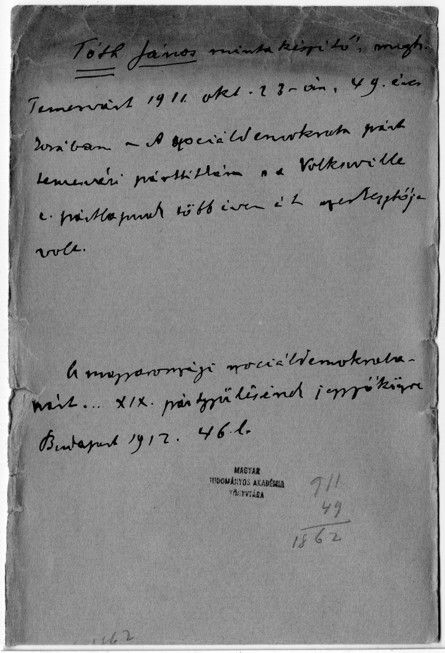 Tóth János mintakészítő, megh.
Temesvárt 1911. okt. 23-án, 49 éves
korában – A szociáldemokrata párt
temesvári párttitkára s a Volkswille
c. pártlapnak több éven át szerkesztője
volt.
A magyarországi szociáldemokrata
párt... XIX. pártgyűlésének jegyzőkönyve
Budapest 1912. 46. l.
MAGYAR
TUDOMÁNYOS AKADÉMIA
KÖNYVTÁRA
911
49
1862
1862